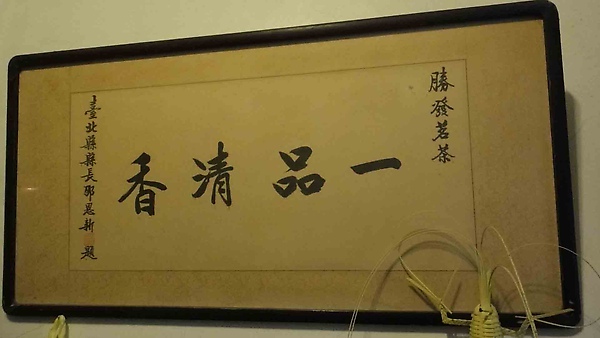 勝發茗茶
一品清香
臺北縣縣長邵恩新 題